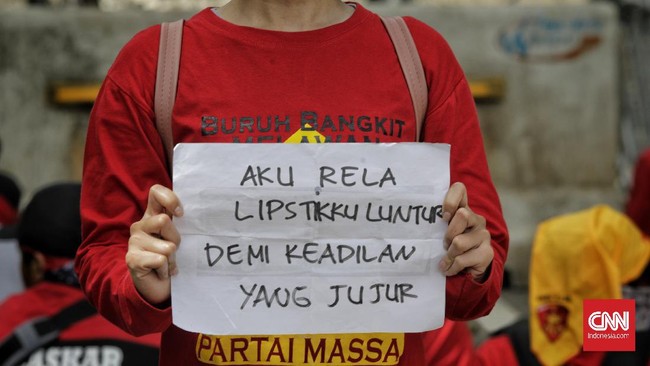 BURUH BANGKIT
MELAWAN
AKU RELA
LIPSTIKKU LUNTUR
DEMI KEADILAN
YANG JUJUR
PARTAI MASSA
ASKAR
CNN
Indonesia.com